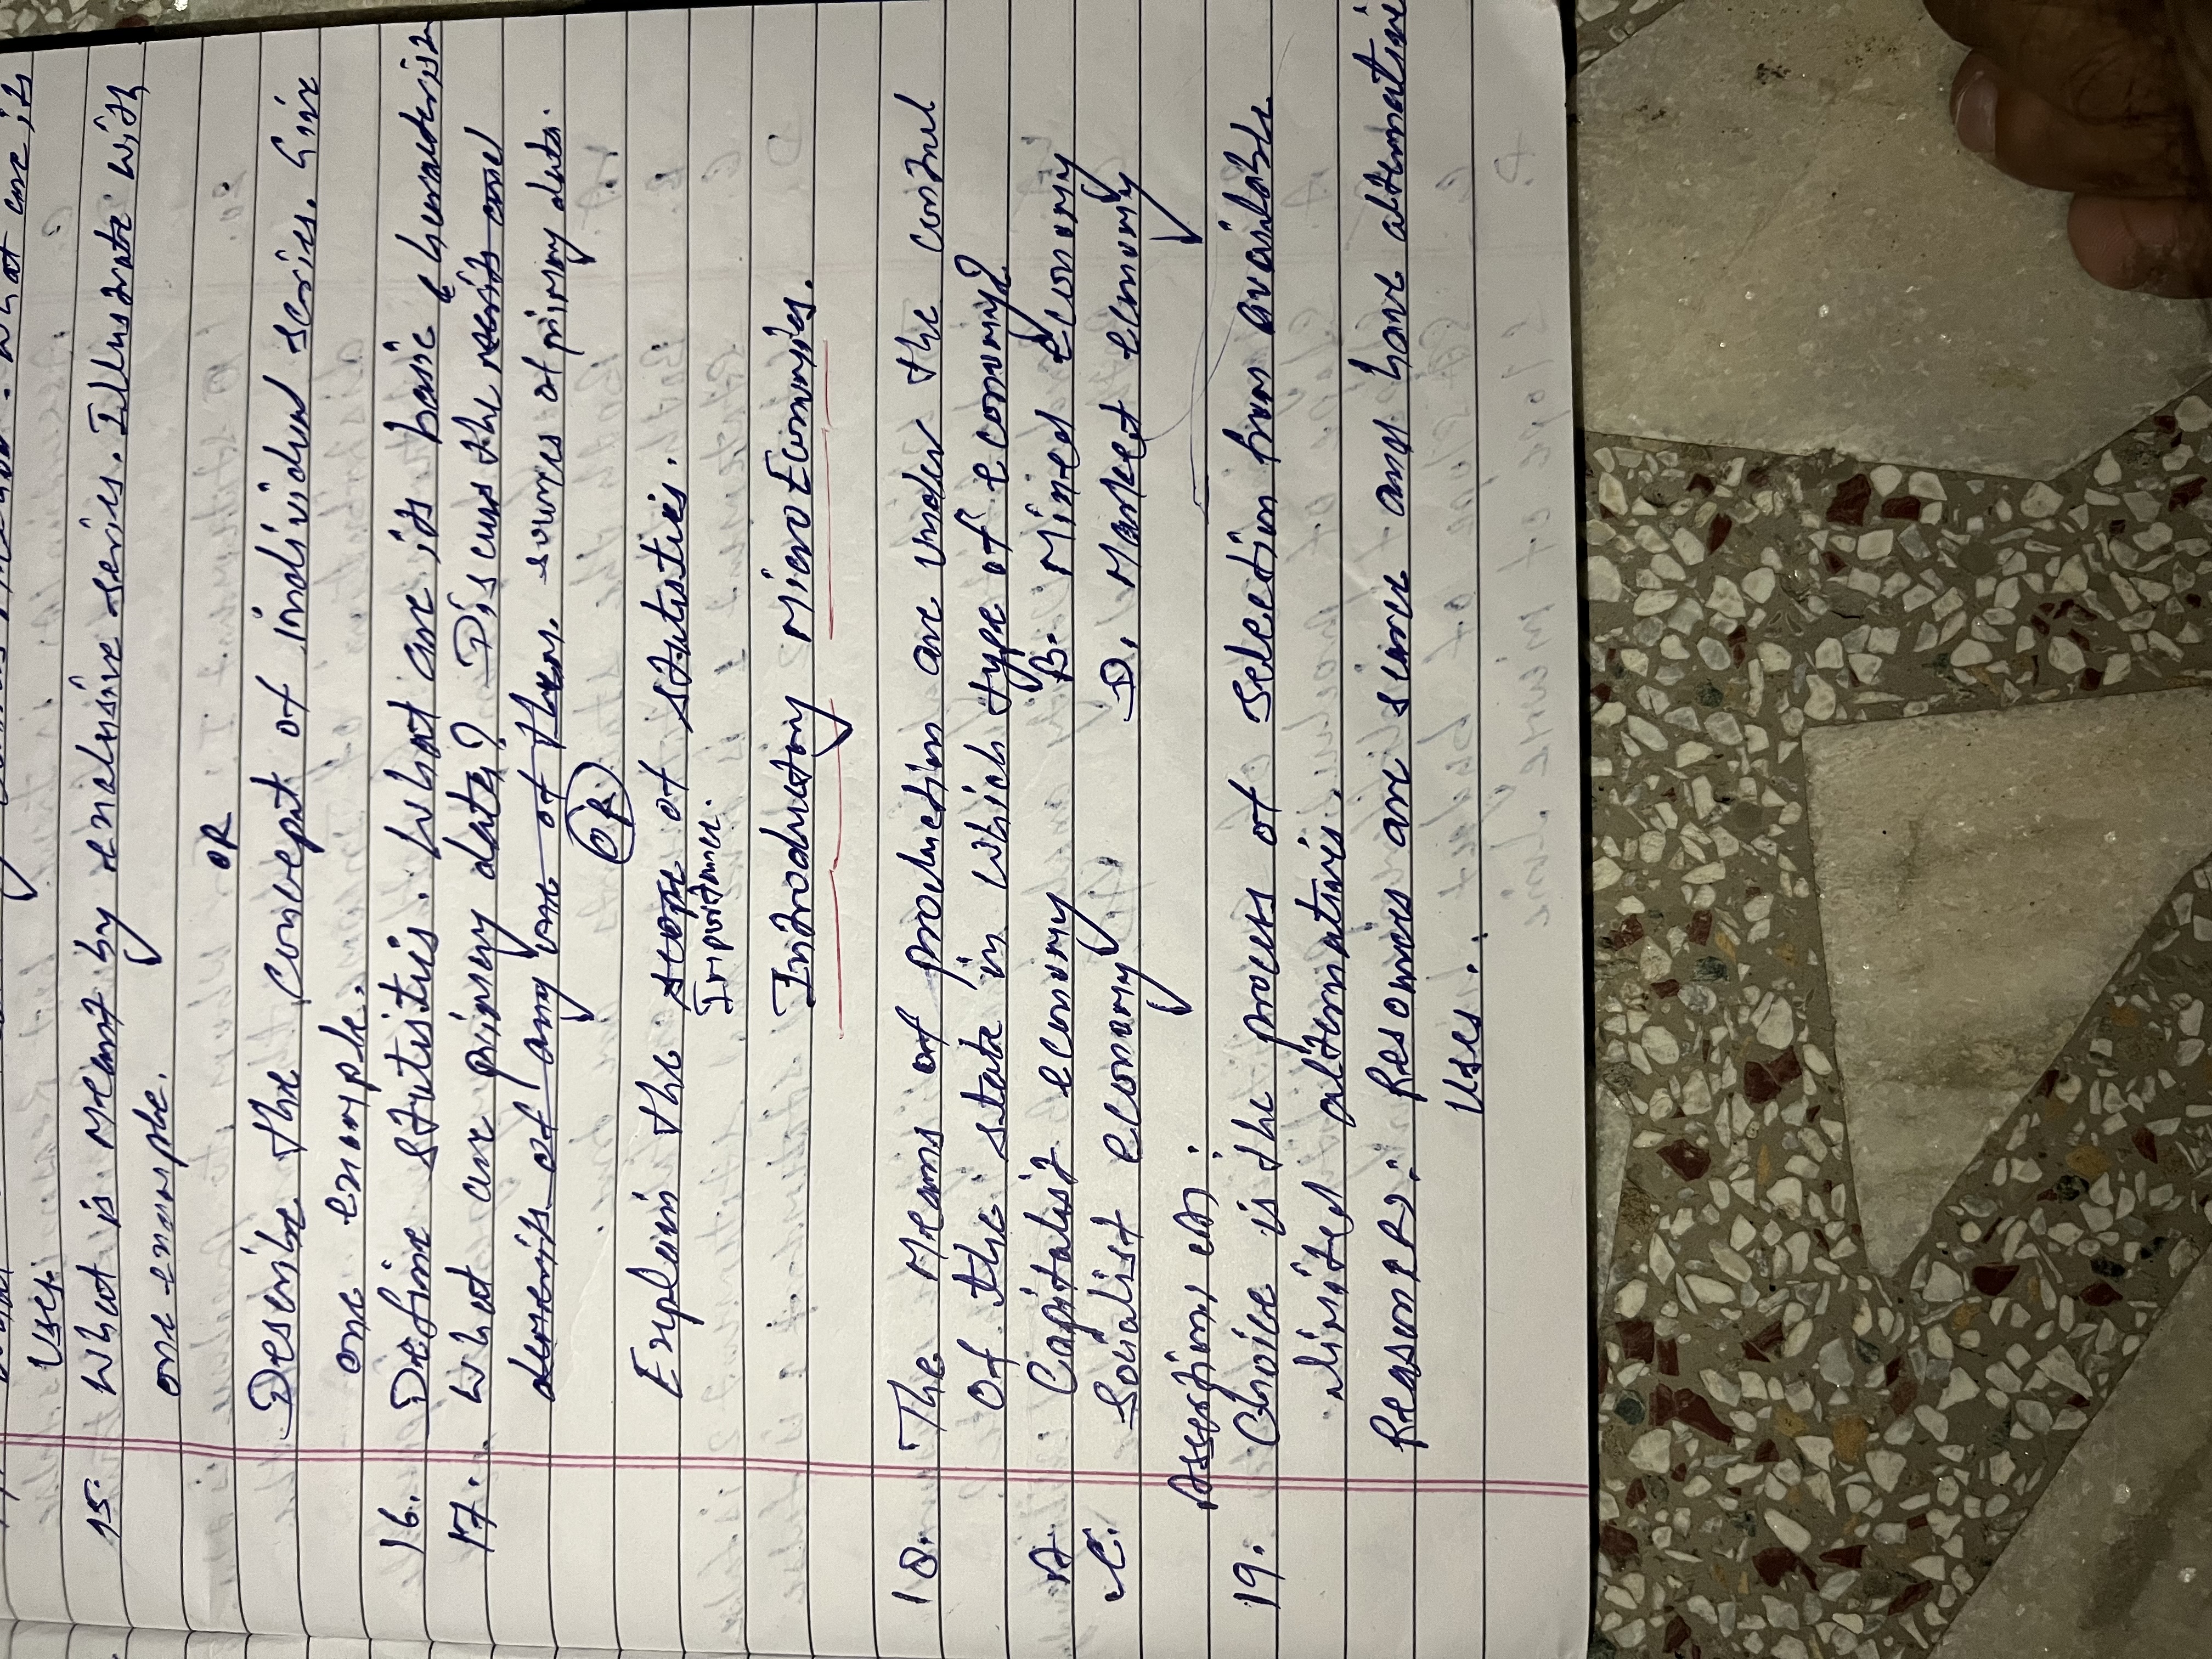 what are its
Uses.
15. What is meant by exclusive series. Illustrate with
one example.
OR
Describe the concept of individual series. Give
one example.
16. Define statistics. What are its basic characteristics
17. What are primary data? Discuss the merits and
demerits of any one of them. sources of primary data.
OR
Explain the scope of statistics.
Importance.
Introductory Micro Economics.
18. The Means of production are under the control
of the state in which type of economy?
A. Capitalist economy B. Mixed Economy
C. Socialist economy D. Market economy
Assertion (A):
19. Choice is the process of selection from available
limited alternatives.
Reason (R): Resources are scarce and have alternative
uses.